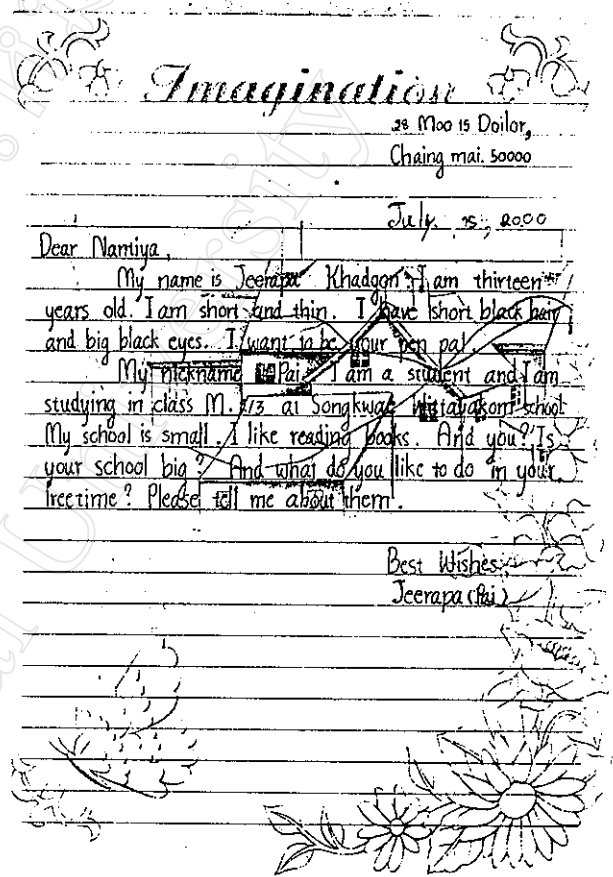 Imagination
28 Moo 15 Doilor,
Chaing mai. 50000
July. 25, 2000
Dear Namiya,
My name is Jeerapa Khadgon. I am thirteen
years old. I am short and thin. I have short black hair
and big black eyes. I want to be your pen pal
My nickname is Pai. I am a student and I am
studying in class M. 2/3 at Songkwae Wittayakom school
My school is small. I like reading books. And you? Is
your school big? And what do you like to do in your
freetime? Please tell me about them.
Best Wishes
Jeerapa (Pai)
University